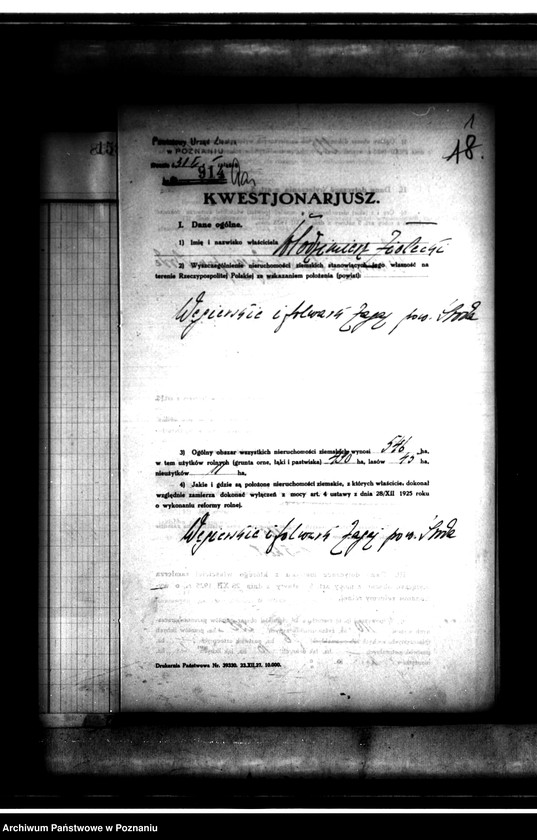 1
18.
Powiatowy Urząd Ziemski
W POZNANIU
914
KWESTJONARJUSZ.
I. Dane ogólne.
1) Imię i nazwisko właściciela Włodzimierz Żółtecki
2) Wyszczególnienie nieruchomości ziemskich stanowiących jego własność na
terenie Rzeczypospolitej Polskiej ze wskazaniem położenia (powiat):
Węgierskie i folwark Zagaj pow. Środa
3) Ogólny obszar wszystkich nieruchomości ziemskich wynosi 546 ha,
w tem użytków rolnych (grunta orne, łąki i pastwiska) ha, lasów 45 ha,
nieużytków ha.
4) Jakie i gdzie są położone nieruchomości ziemskie, z których właściciel dokonał
względnie zamierza dokonać wyłączeń z mocy art. 4 ustawy z dnia 28/XII 1925 roku
o wykonaniu reformy rolnej.
Węgierskie i folwark Zagaj pow. Środa
Drukarnia Państwowa Nr. 39330. 22.XII.27. 10.000.
Archiwum Państwowe w Poznaniu